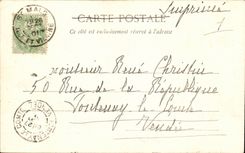 Imprimé
CARTE POSTALE
Ce côté est exclusivement réservé à l'adresse
Monsieur René Christin
50 Rue de la République
Fontenay le Comte
Vendée